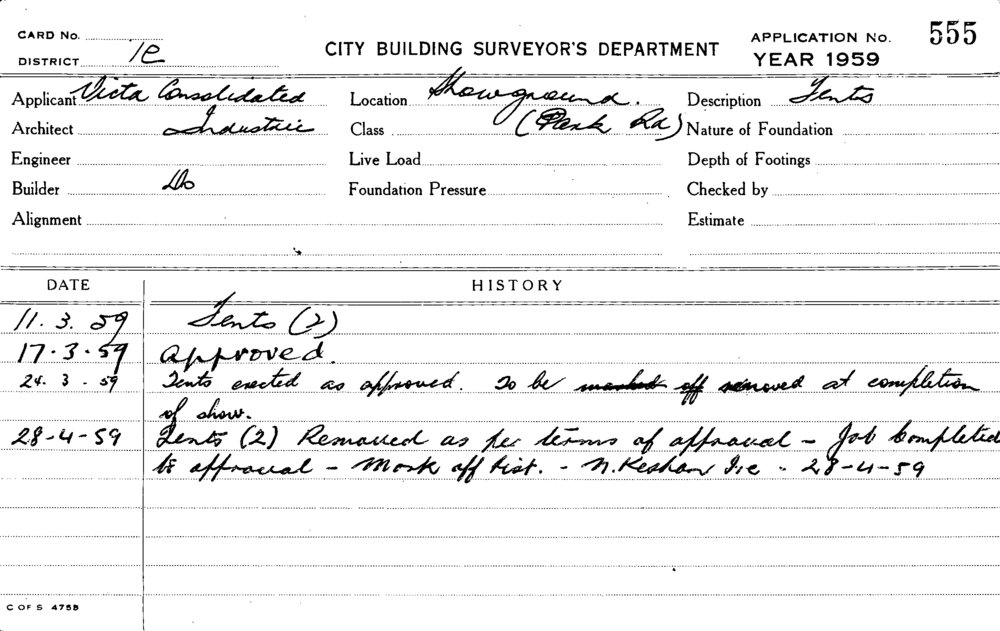 CARD No.
APPLICATION No. 555
DISTRICT 1C
CITY BUILDING SURVEYOR'S DEPARTMENT
YEAR 1959
Applicant Victa Consolidated
Location Showground.
Description Tents
Architect Industrie
Class (Park Rd)
Nature of Foundation
Engineer
Live Load
Depth of Footings
Builder Do
Foundation Pressure
Checked by
Alignment
Estimate
DATE HISTORY
11.3.59 Tents (2)
17.3.59 Approved.
24.3.59 Tents erected as approved. To be marked off removed at completion
of show.
28-4-59 Tents (2) Removed as per terms of approval - Job Completed
to approval - Mark off List. - N. Keshan 28-4-59
C OF S 475B